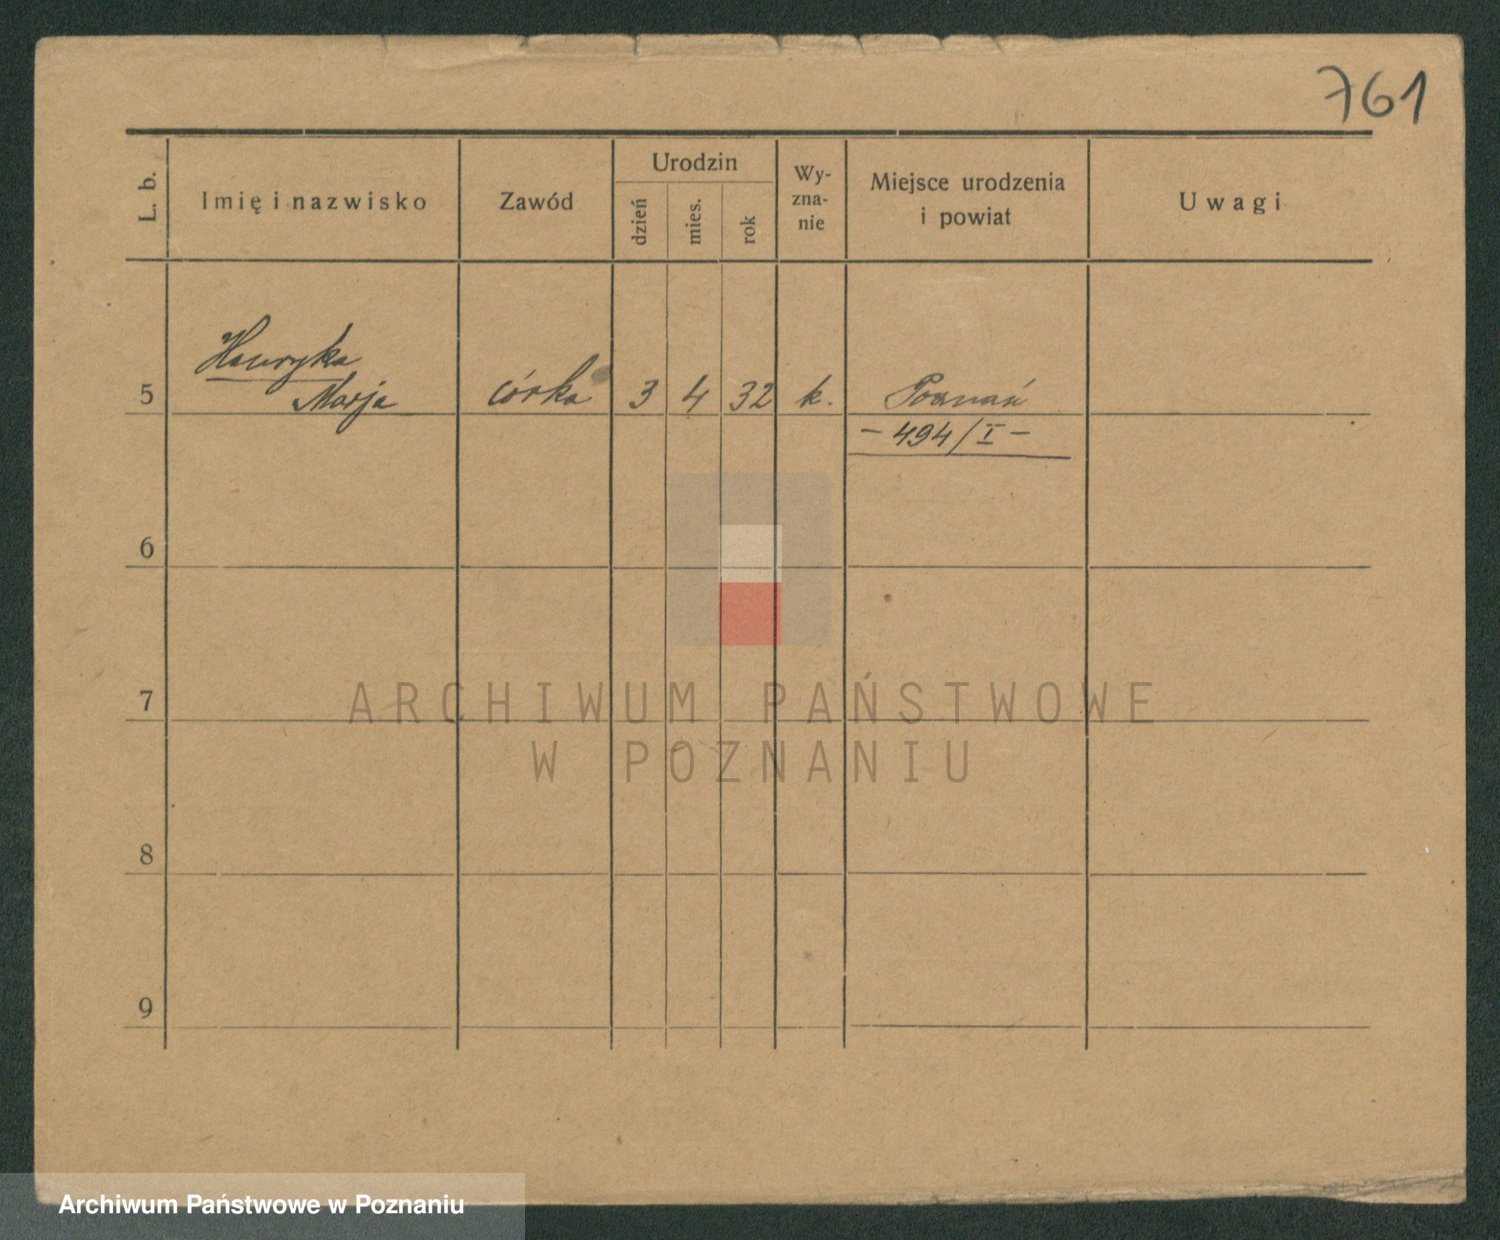 761
L. b.
Imię i nazwisko
Zawód
Urodzin
dzień
mies.
rok
Wy-
zna-
nie
Miejsce urodzenia
i powiat
Uwagi
Henryka
5 Marja córka 3 4 32 k. Poznań
- 494/I -
6
7
8
9
ARCHIWUM PAŃSTWOWE
W POZNANIU
Archiwum Państwowe w Poznaniu